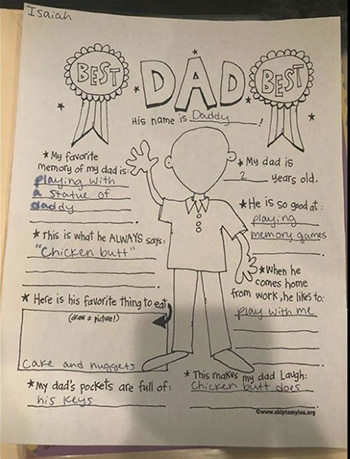 Isaiah
BEST
DAD
BEST
His name is Daddy !
*My favorite
memory of my dad is:
playing with
a statue of
daddy
*This is what he ALWAYS says:
"Chicken butt"
*Here is his favorite thing to eat:
(draw a picture!)
Cake and nuggets
*My dad's pockets are full of:
his keys
*My dad is
2 years old.
*He is so good at:
playing
memory games
*When he
comes home
from work, he likes to:
play with me
*This makes my dad laugh:
Chicken butt does
©www.skiptomylou.org